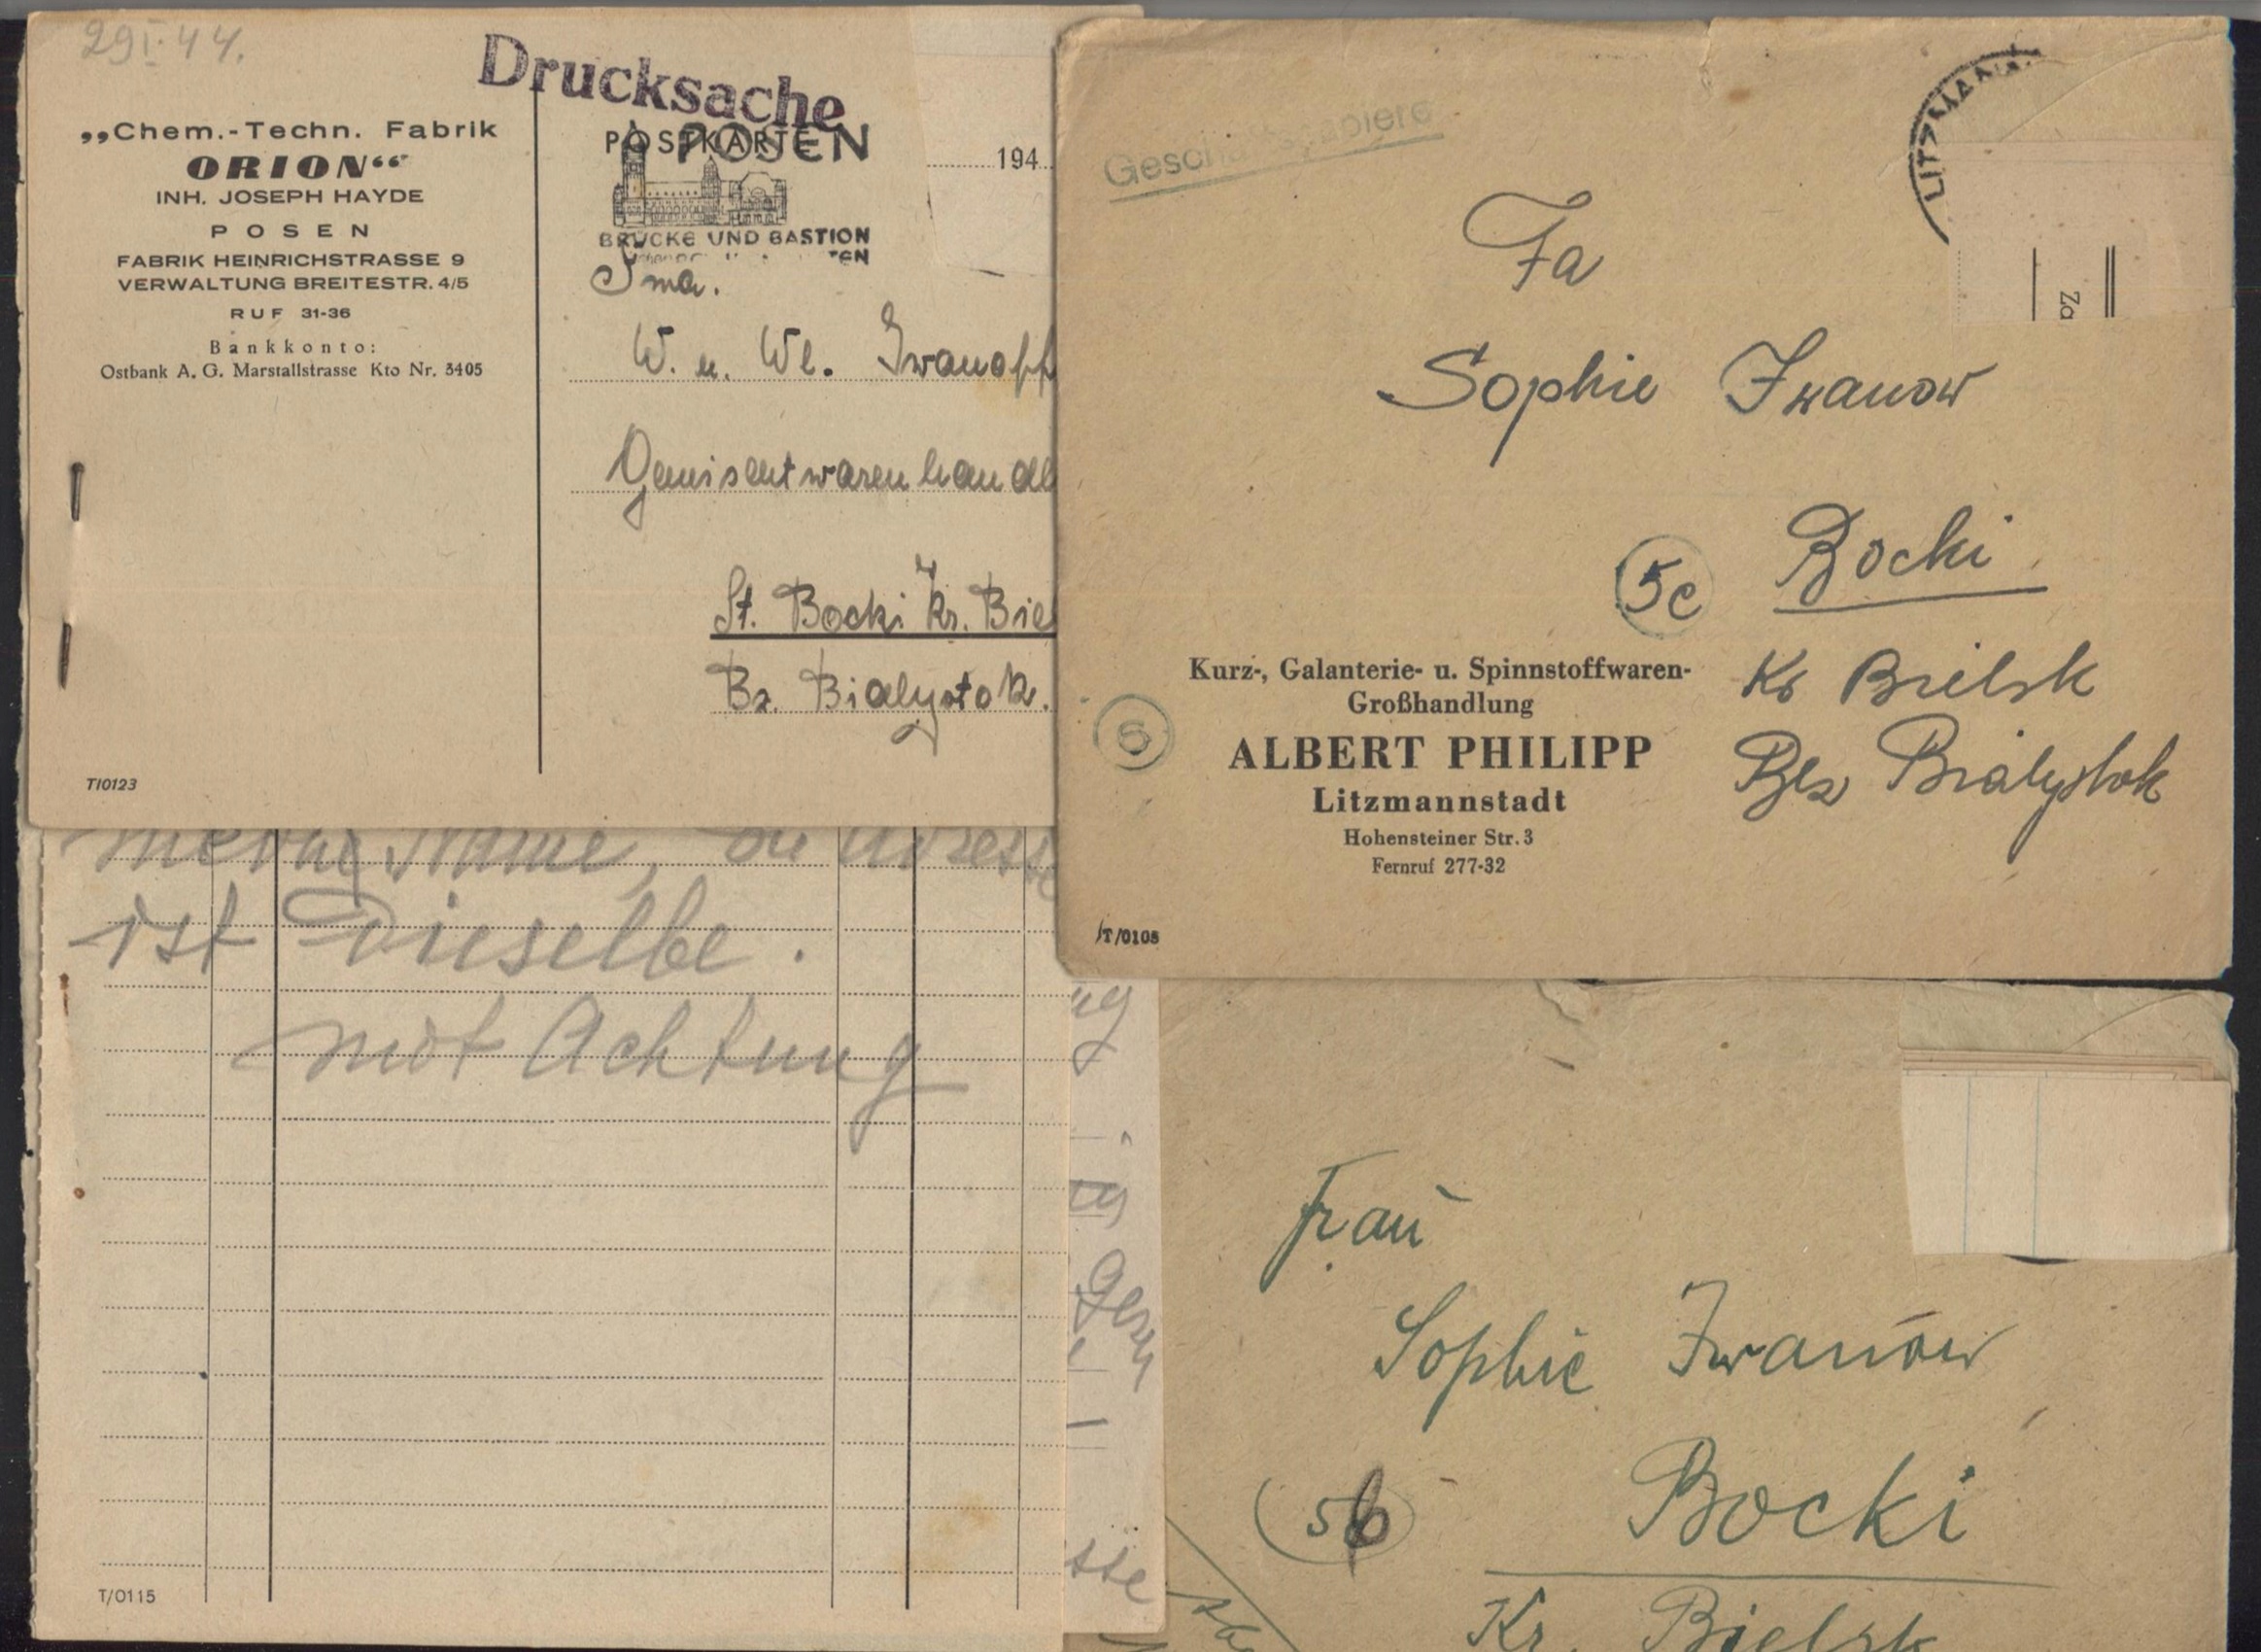 29 I. 44.
Drucksache
„Chem.-Techn. Fabrik
ORION“
INH. JOSEPH HAYDE
POSEN
FABRIK HEINRICHSTRASSE 9
VERWALTUNG BREITESTR. 4/5
RUF 31-36
Bankkonto:
Ostbank A. G. Marstallstrasse Kto Nr. 3405
TI0123
POSTKARTE
POSEN
194
BRÜCKE UND BASTION
Fma.
W. u. Wl. Iwanoff
Gemischtwarenhandl
St. Bocki Kr. Biel
Bz. Bialystok.
LITZMANN
Za
Fa
Sophie Iwanow
5c
Bocki
Kr Bielsk
Bez Bialystok
6
Kurz-, Galanterie- u. Spinnstoffwaren-
Großhandlung
ALBERT PHILIPP
Litzmannstadt
Hohensteiner Str. 3
Fernruf 277-32
T/0105
Name, die Adresse
ist dieselbe.
mit Achtung
T/0115
Frau
Sophie Iwanow
5b
Bocki
Kr. Bielsk